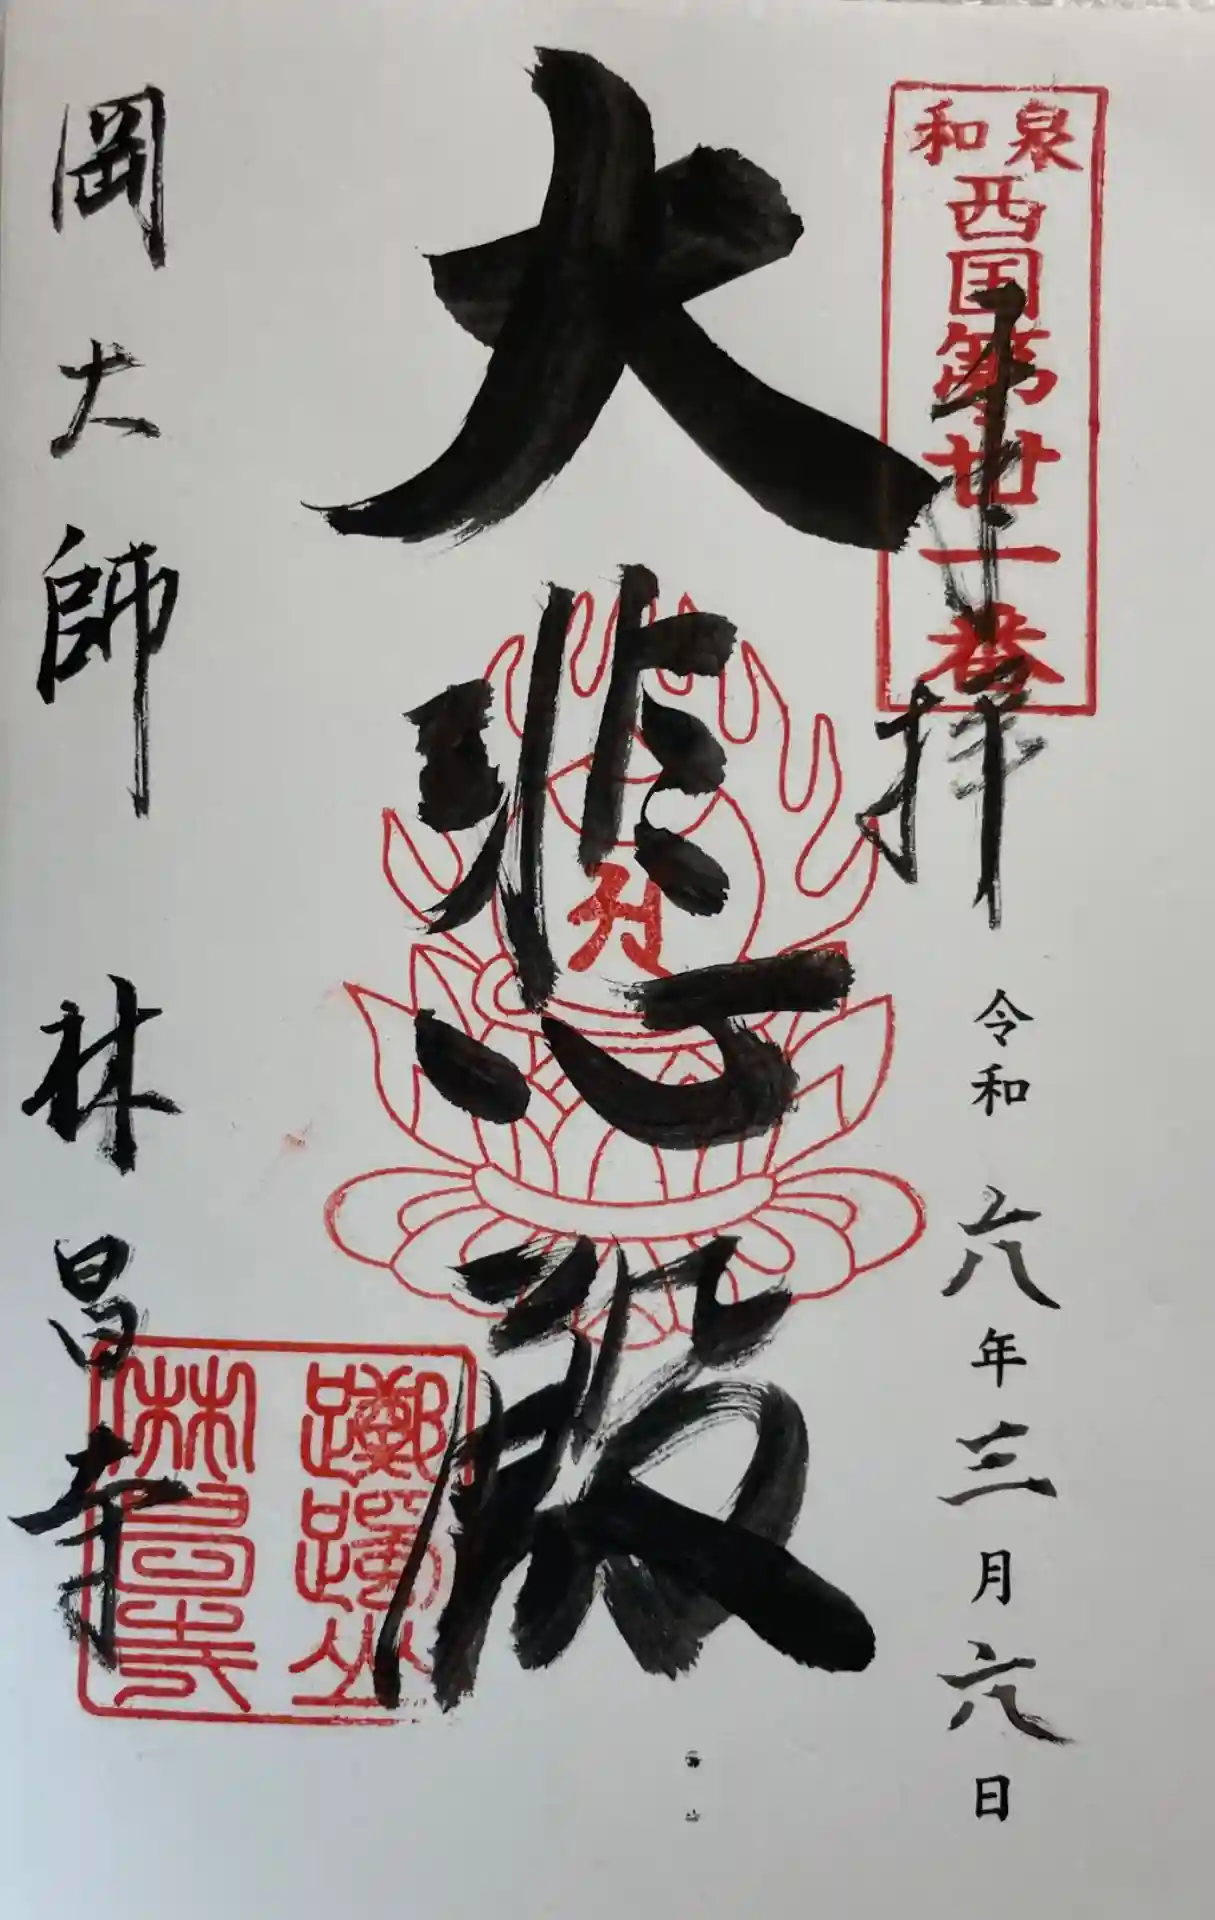 和泉
西国第廿一番
奉拝
令和六年三月六日
大悲殿
躑躅山
林昌寺
岡大師 林昌寺